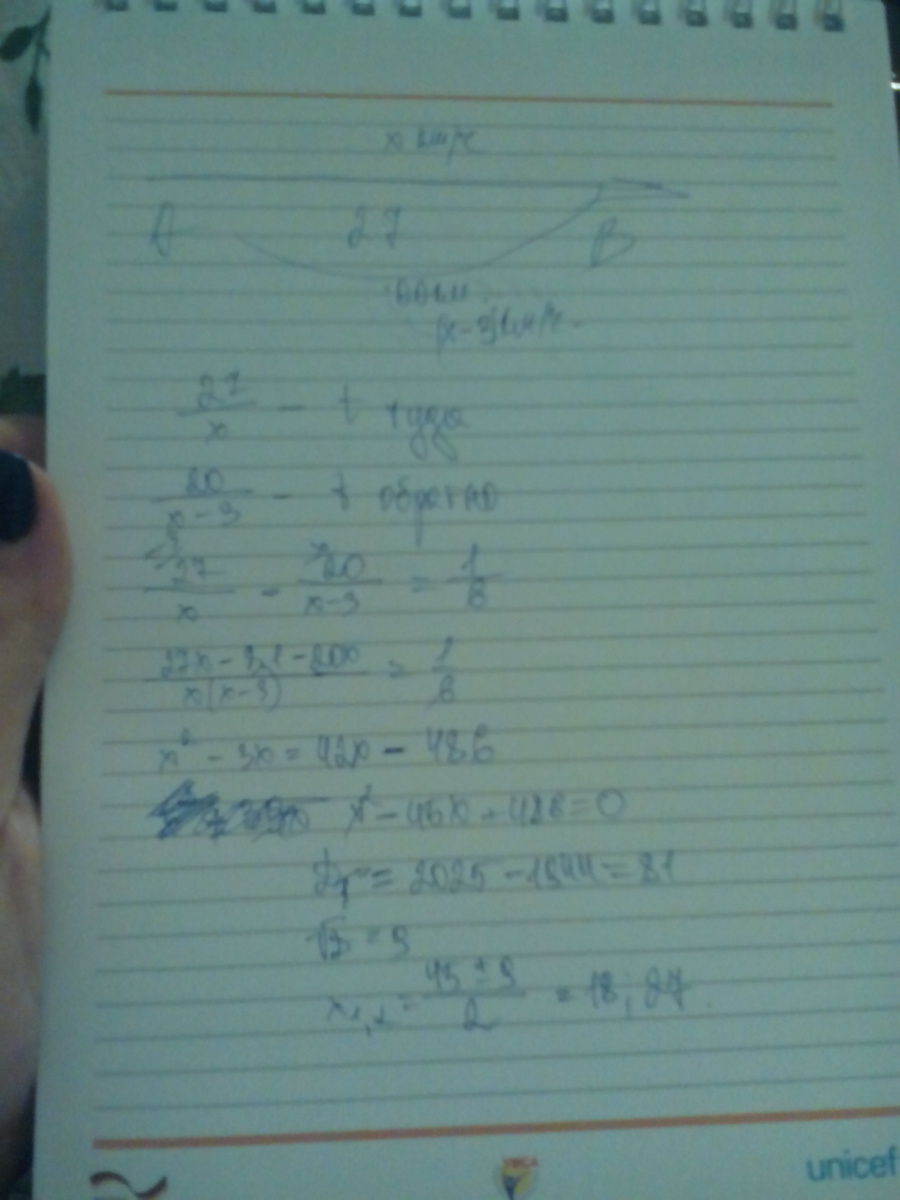 x км/ч
A 27 B
20 км
(x-3) км/ч
27/x - t туда
20/(x-3) - t обратно
27/x - 20/(x-3) = 1/6
(27x - 81 - 20x)/(x(x-3)) = 1/6
x² - 3x = 42x - 486
x² - 45x + 486 = 0
= 2025 - 1944 = 81
= 9
x₁,₂ = (45 ± 9)/2 = 18; 27
unicef